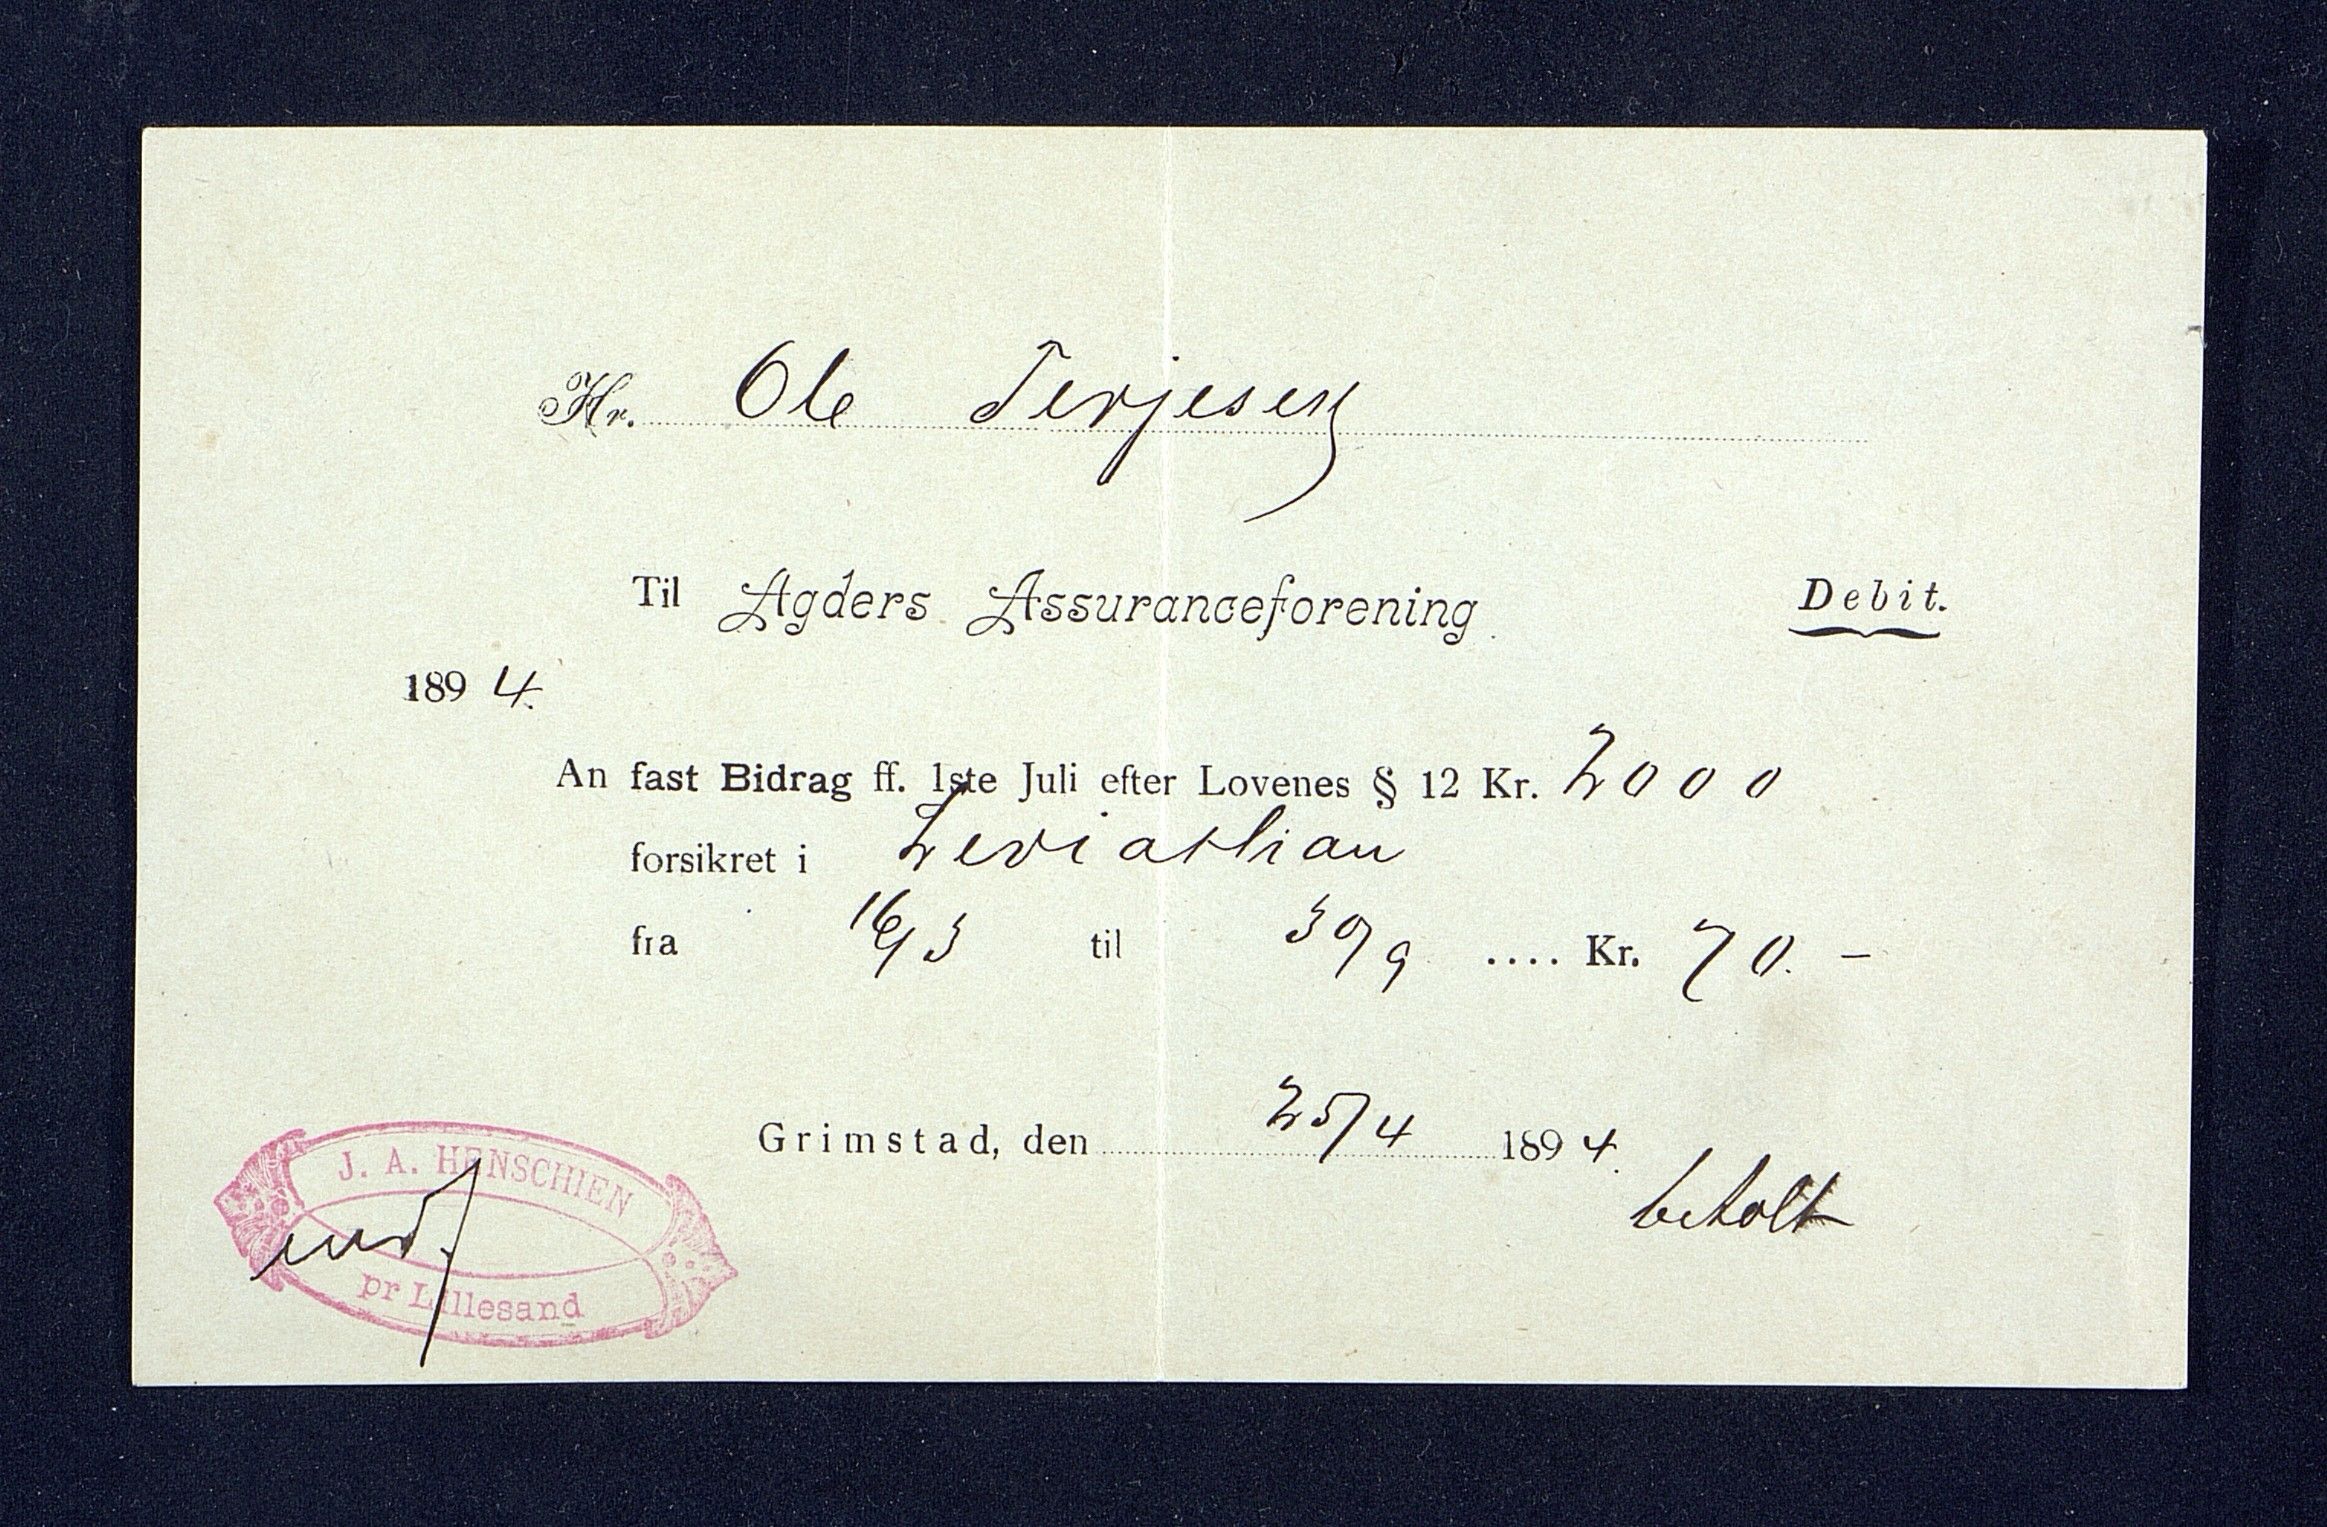 Hr. Ole Terjesen
Til Agders Assuranceforening. Debit.
1894.
An fast Bidrag ff. 1ste Juli efter Lovenes § 12 Kr. 2000
forsikret i Leviathan
fra 16/3 til 30/9 .... Kr. 70. –
Grimstad, den 25/4 1894.
betalt
J. A. HENSCHIEN
pr Lillesand